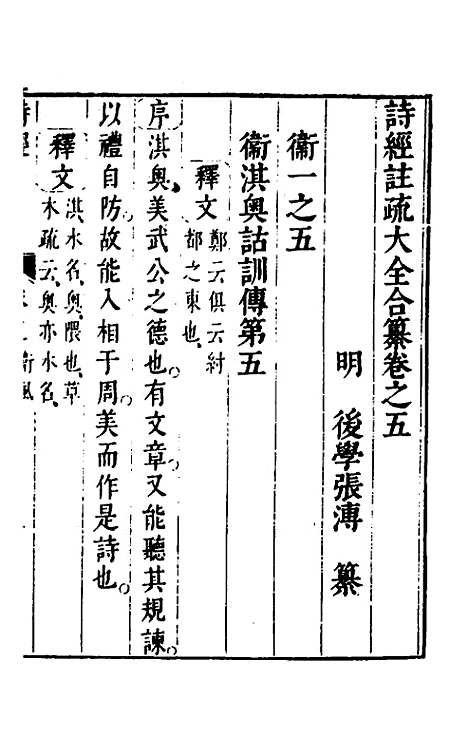 詩經註疏大全合纂卷之五
明　後學張溥　纂
衞一之五
衞淇奧詁訓傳第五
釋文
鄭云俱云紂
都之東也
序淇奧美武公之德也。有文章又能聽其規諫。
以禮自防故能入相于周。美而作是詩也。
釋文
淇水名。奧隈也。草
木疏云。奧亦水名。